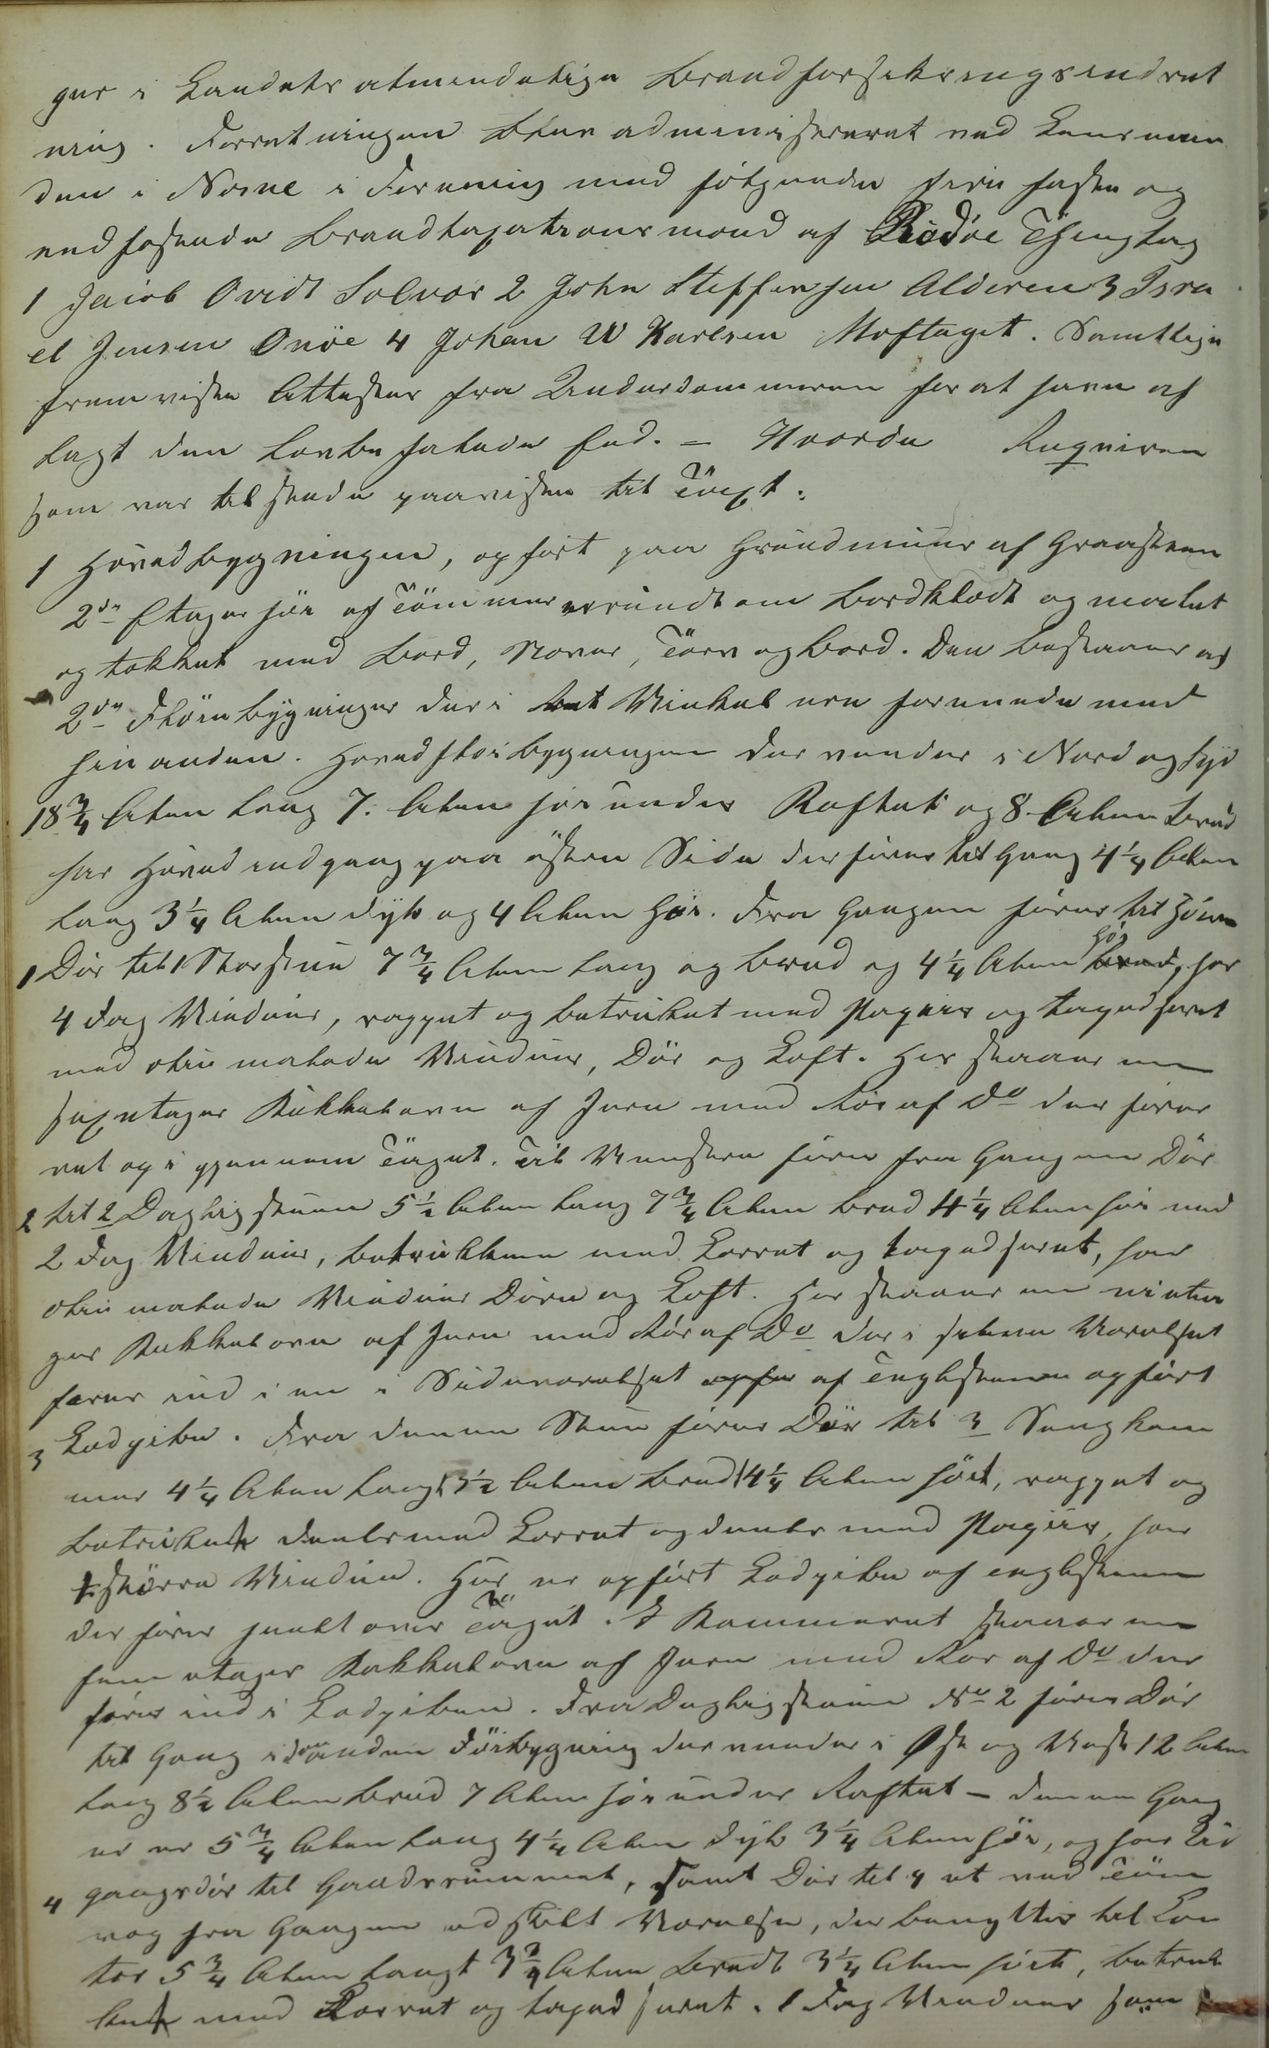 ger i Landets almindelige Brandforsikringsindret
ning. Forretningen blev administreret ved Lensman
den i Nesne i Forening med følgende fire faste og
eedfæstede Brandtaxationsmænd af Rødøe Thinglag
1 Jacob Ovidt Selvær 2 John Steffensen Alderen 3 Isra
el Jensen Onøe 4 Johan W Karlsen Moflaget. Samtlige
fremviste Attester fra Underdommeren for at have af
lagt den Lovbefalede Eed. - Hvorda Reqviren
som var tilstede paaviste til Taxt:
1 Hovedbygningen, opført paa Grundmuur af Graasteen
2de Etager høi af Tømmer er rundt om Bordklædt og malet
og tækket med Bord, Næver, Törv og Bord. Den bestaaer af
2de Fløibygninger der i ret Vinkel ere forenede med
hinanden. Hovedfløibygningen der vender i Nord og Syd
18 3/4 Alen lang 7. Alen høi under Raftet og 8 Alen bred
har Hovedindgang paa østre Side der fører til Gang 4 1/4 Alen
lang 3 1/4 Alen dyb og 4 Alen høi. Fra Gangen fører til Høire
1 Dør til 1 Storstue 7 3/4 Alen lang og bred og 4 1/4 Alen høi bred, har
4 Fag Vinduer, rappet og betrukket med Papiir og tapedseret
med oliemalede Vinduer, Dör og Loft. Her staaer en
sexetages Kakkelovn af Jern med Rør af Do der fører
ret op i gjennem Taget. Til Venstre fører fra Gangen Dör
2 til 2 Dagligstuen 5 1/2 Alen lang 7 3/4 Alen bred 4 1/4 Alen høi med
2 Fag Vinduer, betrukken med Lerret og tapedseret, har
oliemalede Vinduer Döre og Loft. Her staaer en
ger Kakkelovn af Jern med Rør af Do der i selve Værelset
fører ind i en i Sideværelset opfø af Teglsteene opført
3 Ladpibe. Fra denne Stue fører Dör til 3 Sengkam
mer 4 1/4 Alen langt 3 1/2 Alen bred 4 1/4 Alen høit, rappet og
betrukket deels med Lerret og deels med Papiir, har
1 større Vindue. Her er opført Ladpibe af englsteene
der fører halvt over Taget. I Kammeret staaer en
fem etages Kakkelovn af Jern med Rør af Do der
fører ind i Ladpiben. Fra Dagligstuen No 2 fører Dör
til Gang i den anden Fløibygning der vender i Øst og Vest 12 Alen
lang 8 1/2 Alen bred 7 Alen høi under Raftet - denne Gang
er er 5 3/4 Alen lang 4 1/4 Alen dyb 3 1/4 Alen høi, og har Ud
4 gangsdör til Gaardsrummet, samt Dör til 4 et ved Töm
veg fra Gangen adskilt Værelse, der benyttes til Con
tor 5 3/4 Alen langt 3 3/4 Alen bredt 3 1/4 Alen høit, betruk
ket med Lerret og tapedseret. 1 Fag Vinduer som